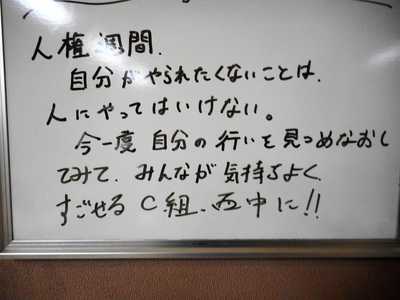 人権週間.
自分がやられたくないことは、
人にやってはいけない。
今一度 自分の行いを見つめなおし
てみて、みんなが気持ちよく
すごせる C組、西中に!!